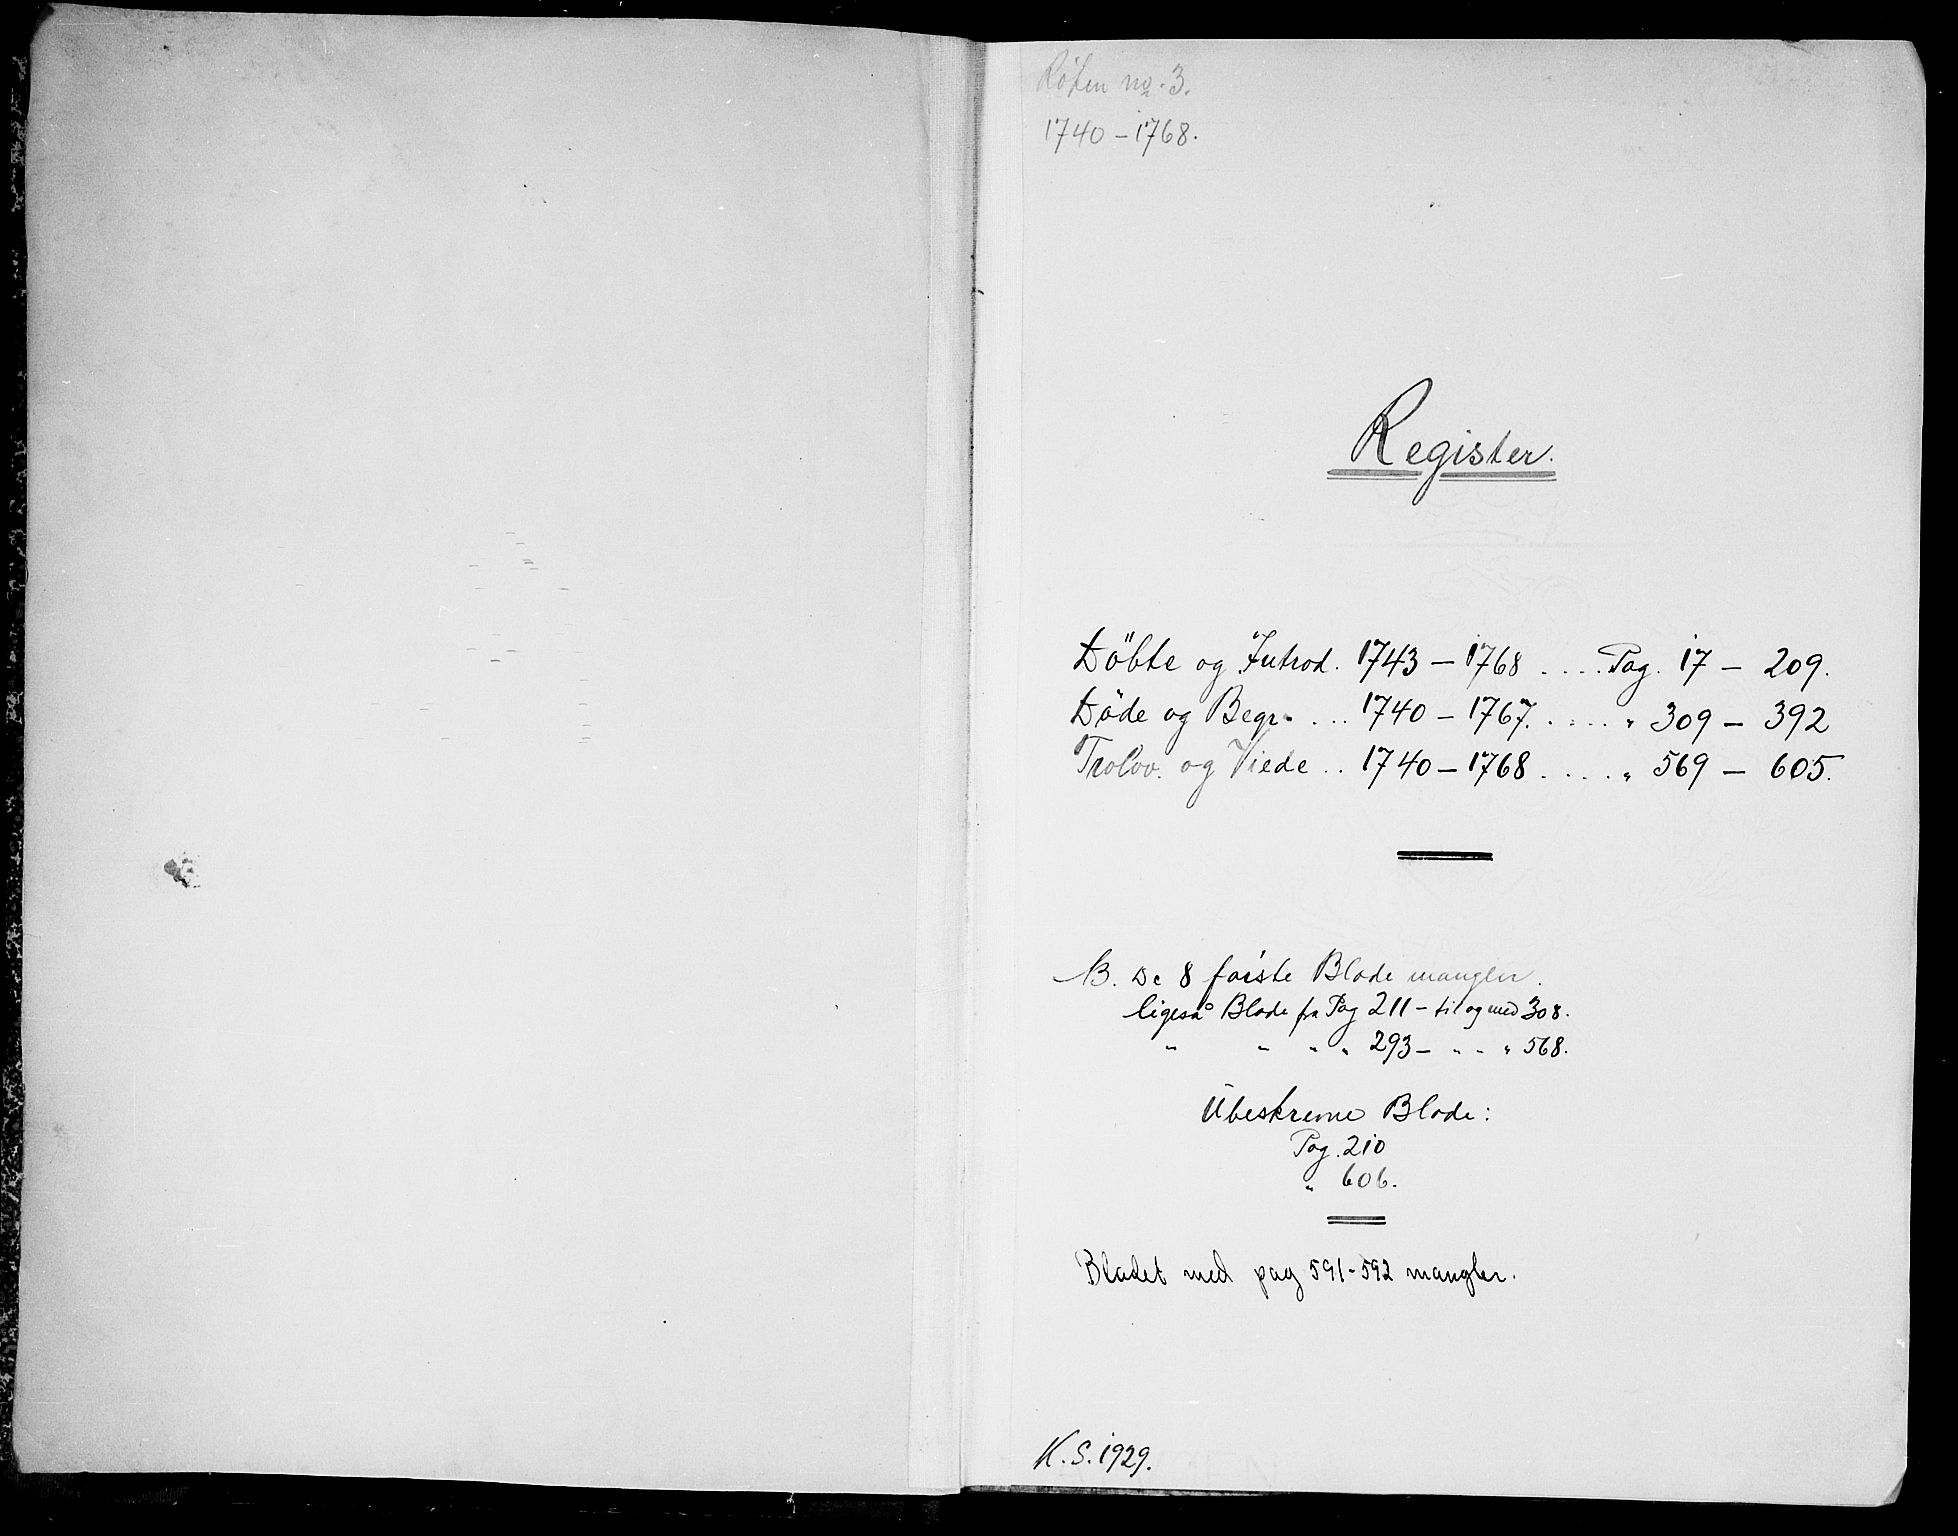 Röken no. 3.
1740 - 1768.
Register.
Döbte og Introd. 1743 - 1768 .... Pag. 17 - 209.
Döde og Begr. ... 1740 - 1767. .... " 309 - 392
Trolov. og Viede .. 1740 - 1768 .... " 569 - 605.
NB. De 8 første Blade mangler.
ligeså Blade fra Pag 211 - til og med 308.
" " " " 293 - " " " 568.
Ubeskrevne Blade:
Pag. 210
" 606.
Bladet med pag 591-592 mangler.
K. S. 1929.